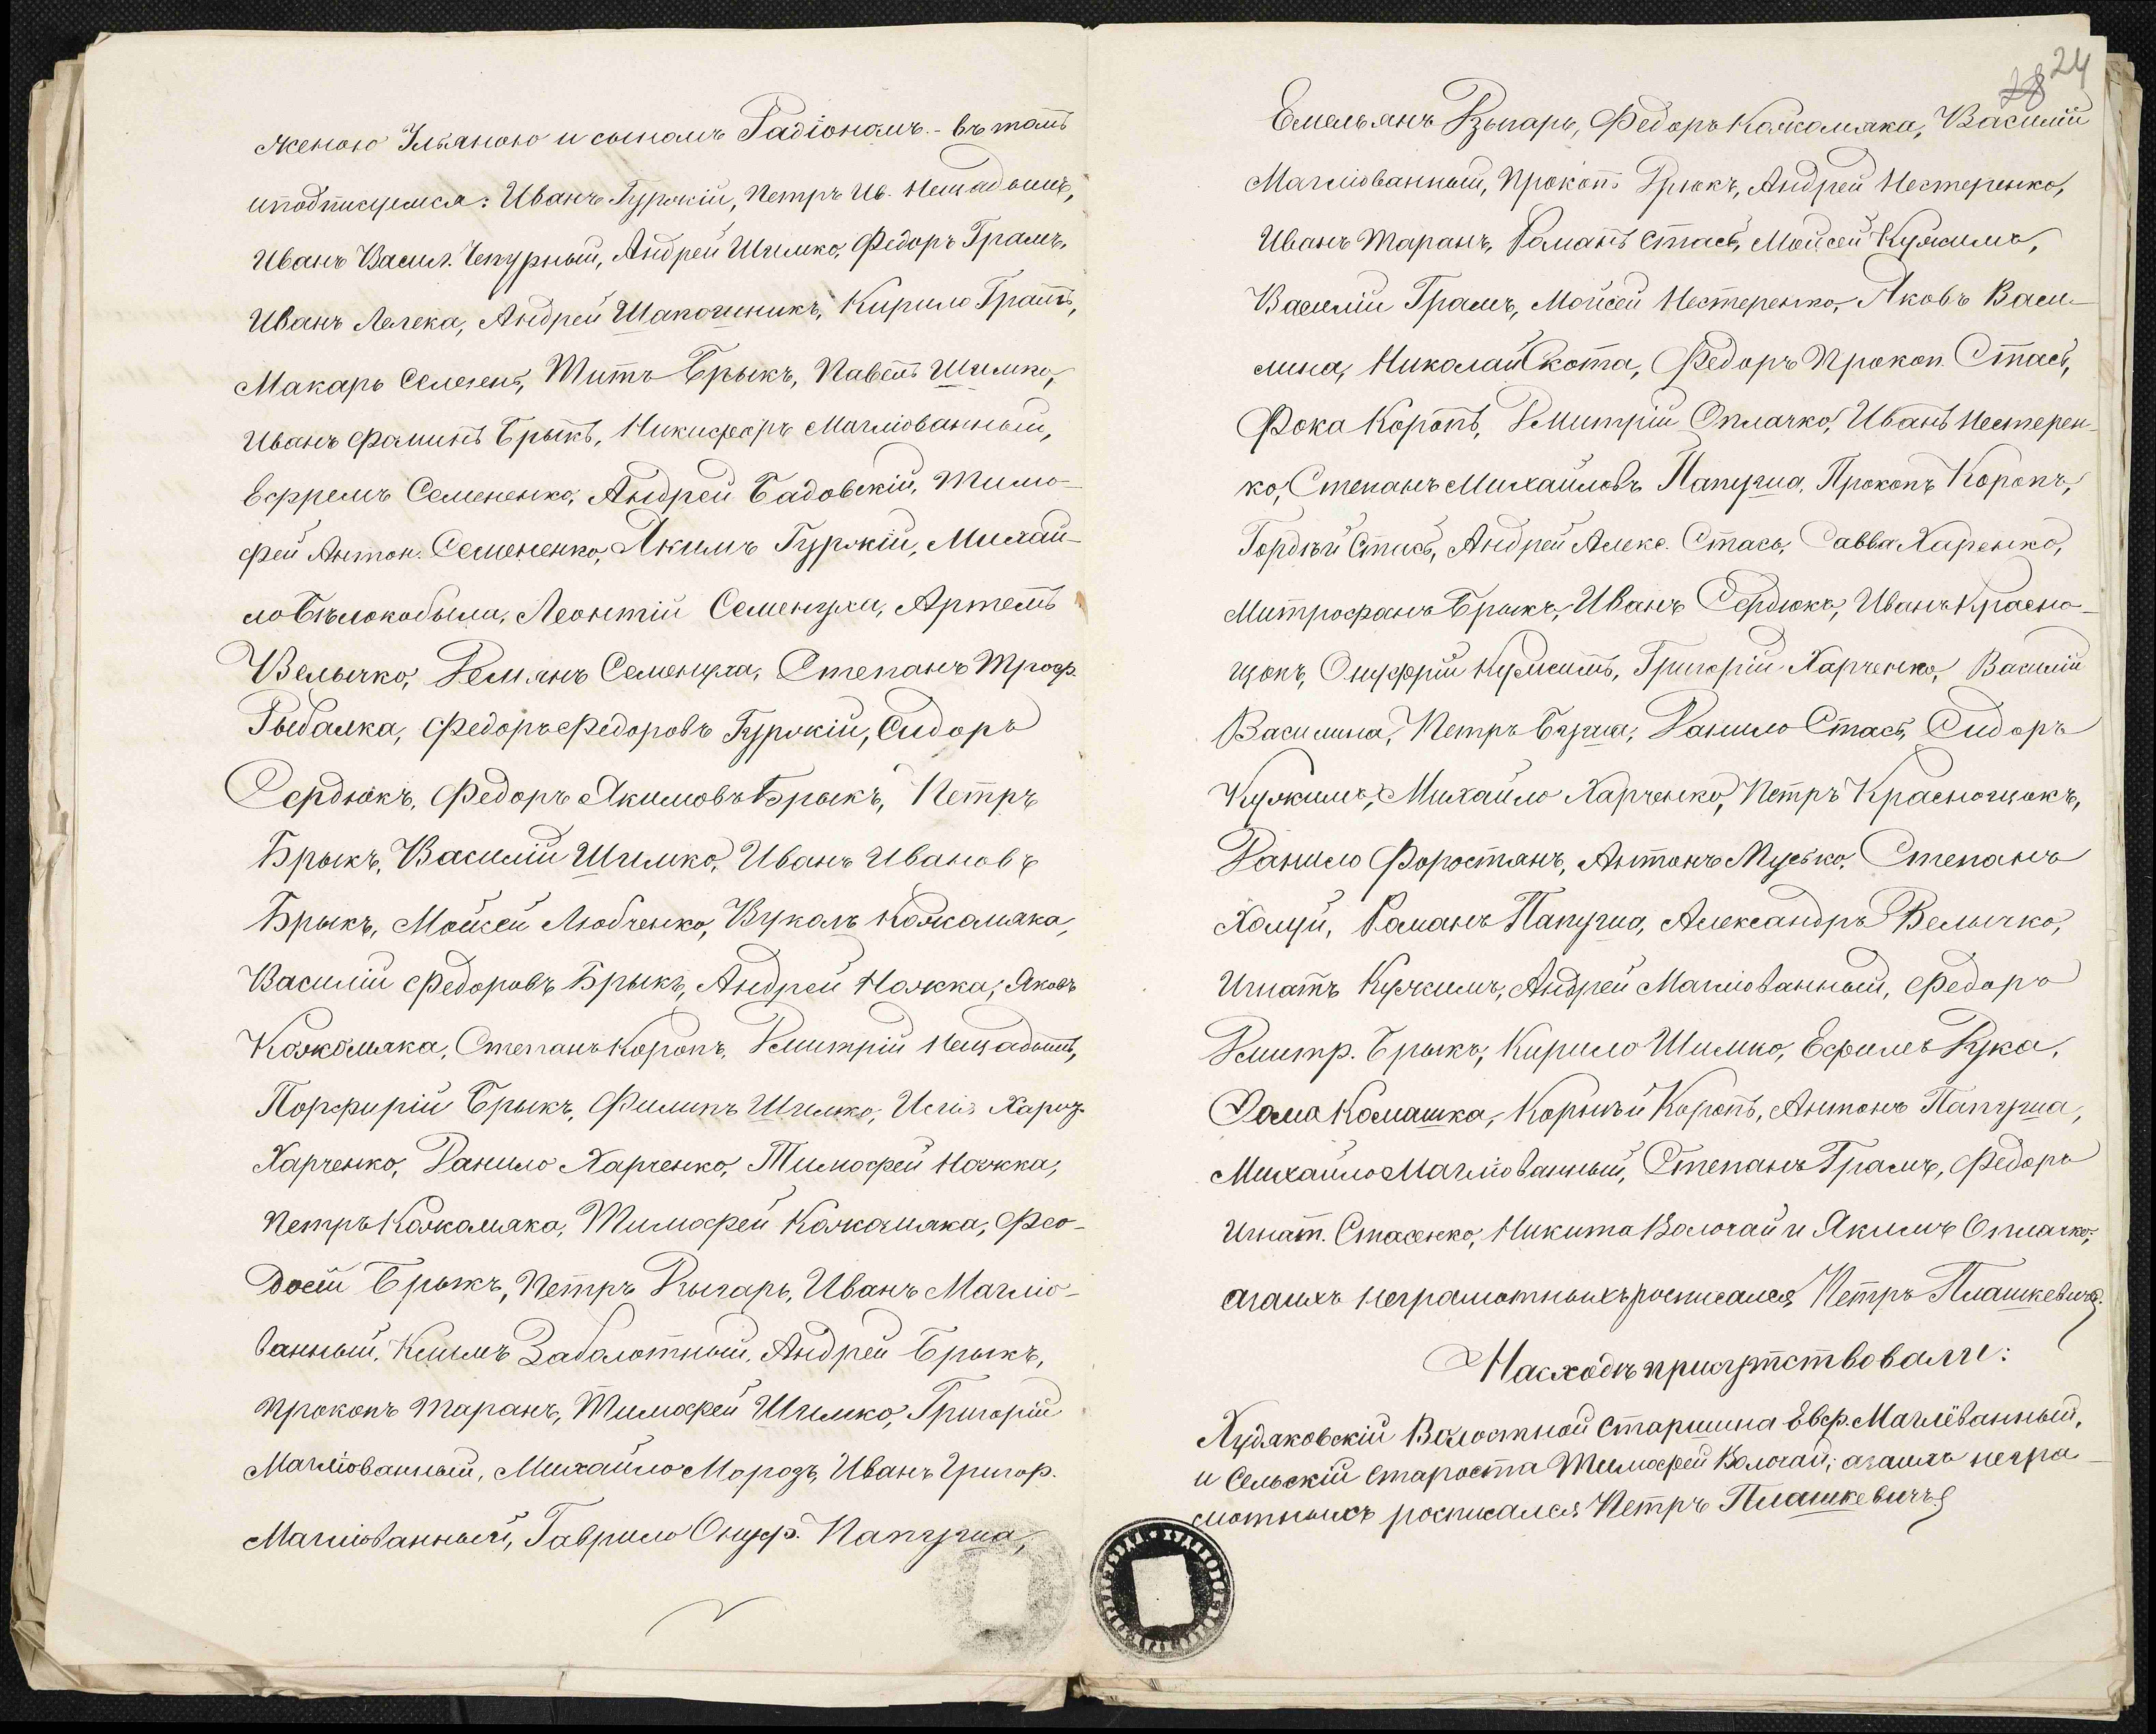 женою Ульяною и сыномъ Радіономъ. - въ томъ
и подписуемся: Иванъ Гуржій, Петръ Ив. Нещадымъ,
Иванъ Васил. Чепурный, Андрей Шимко, Федоръ Грамъ,
Иванъ Лелека, Андрей Шапошникъ, Кирило Грамъ,
Макаръ Селезень, Титъ Брыкъ, Павелъ Шимко,
Иванъ Фоминъ Брыкъ, Никифоръ Маглiованный,
Ефремъ Семененко, Андрей Бадовскій, Тимо-
фей Антон. Семененко, Якимъ Гуржій, Михай-
ло Бѣлокобыла, Леонтій Семенуха, Артемъ
Велычко, Демянъ Семенуха, Степанъ Троф.
Рыбалка, Федоръ Федоровъ Гуржій, Сидоръ
Сердюкъ, Федоръ Якимовъ Брыкъ, Петръ
Брыкъ, Василій Шимко, Иванъ Ивановъ
Брыкъ, Мойсей Любченко, Вуколъ Кожемяка,
Василій Федоровъ Брыкъ, Андрей Ножка, Яковъ
Кожемяка, Степанъ Коропъ, Дмитрій Нещадымъ,
Порфирій Брыкъ, Филипъ Шимко,
Харченко, Данило Харченко, Тимофей Ножка,
Петръ Кожемяка, Тимофей Кожемяка, Фео-
досій Брыкъ, Петръ Рыгарь, Иванъ Магліо-
ванный, Климъ Заболотный, Андрей Брыкъ,
Прокопъ Таранъ, Тимофей Шимко, Григорій
Магліованный, Михайло Морозъ, Иванъ Григор.
Магліованный, Гаврило Онуф. Папуша,
28 24
Емельянъ Рыгарь, Федоръ Кожемяка, Василій
Магліованный, Прокопъ Грюкъ, Андрей Нестеренко,
Иванъ Таранъ, Романъ Стась, Мойсей Кужимъ,
Василій Грамъ, Мойсей Нестеренко, Яковъ Васи-
лина, Николай Скота, Федоръ Прокоп. Стась,
Фока Коропъ, Дмитрій Оплачко, Иванъ Нестерен-
ко, Степанъ Михайловъ Папуша, Прокопъ Коропъ,
Гордѣй Стась, Андрей Алекс. Стась, Савва Харенко,
Митрофанъ Брыкъ, Иванъ Сердюкъ, Иванъ Красно-
щокъ, Онуфрій Кужимъ, Григорій Харченко, Василій
Василина, Петръ Данило Стась, Сидоръ
Кужимъ, Михайло Харченко, Петръ Краснощокъ,
Данило Форостянъ, Антонъ Мусько, Степанъ
Холуй, Романъ Папуша, Александръ Велычко,
Игнатъ Кужимъ, Андрей Магліованный, Федоръ
Дмитр. Брыкъ, Кирило Шимко, Ефимъ Рука,
Фома Комашка, Корнѣй Коропъ, Антонъ Папуша,
Михайло Магліованный, Степанъ Грамъ, Федоръ
Игнат. Стасенко, Никита Волочай и Якимъ Оплачко;
а за ихъ неграмотныхъ росписался Петръ Плашкевичъ.
На сходѣ присутствовали:
Худяковскій Волостной Старшина Евф. Маглёванный,
и Сельскій Староста Тимофей Волочай; а за ихъ негра-
мотныхъ росписался Петръ Плашкевичъ